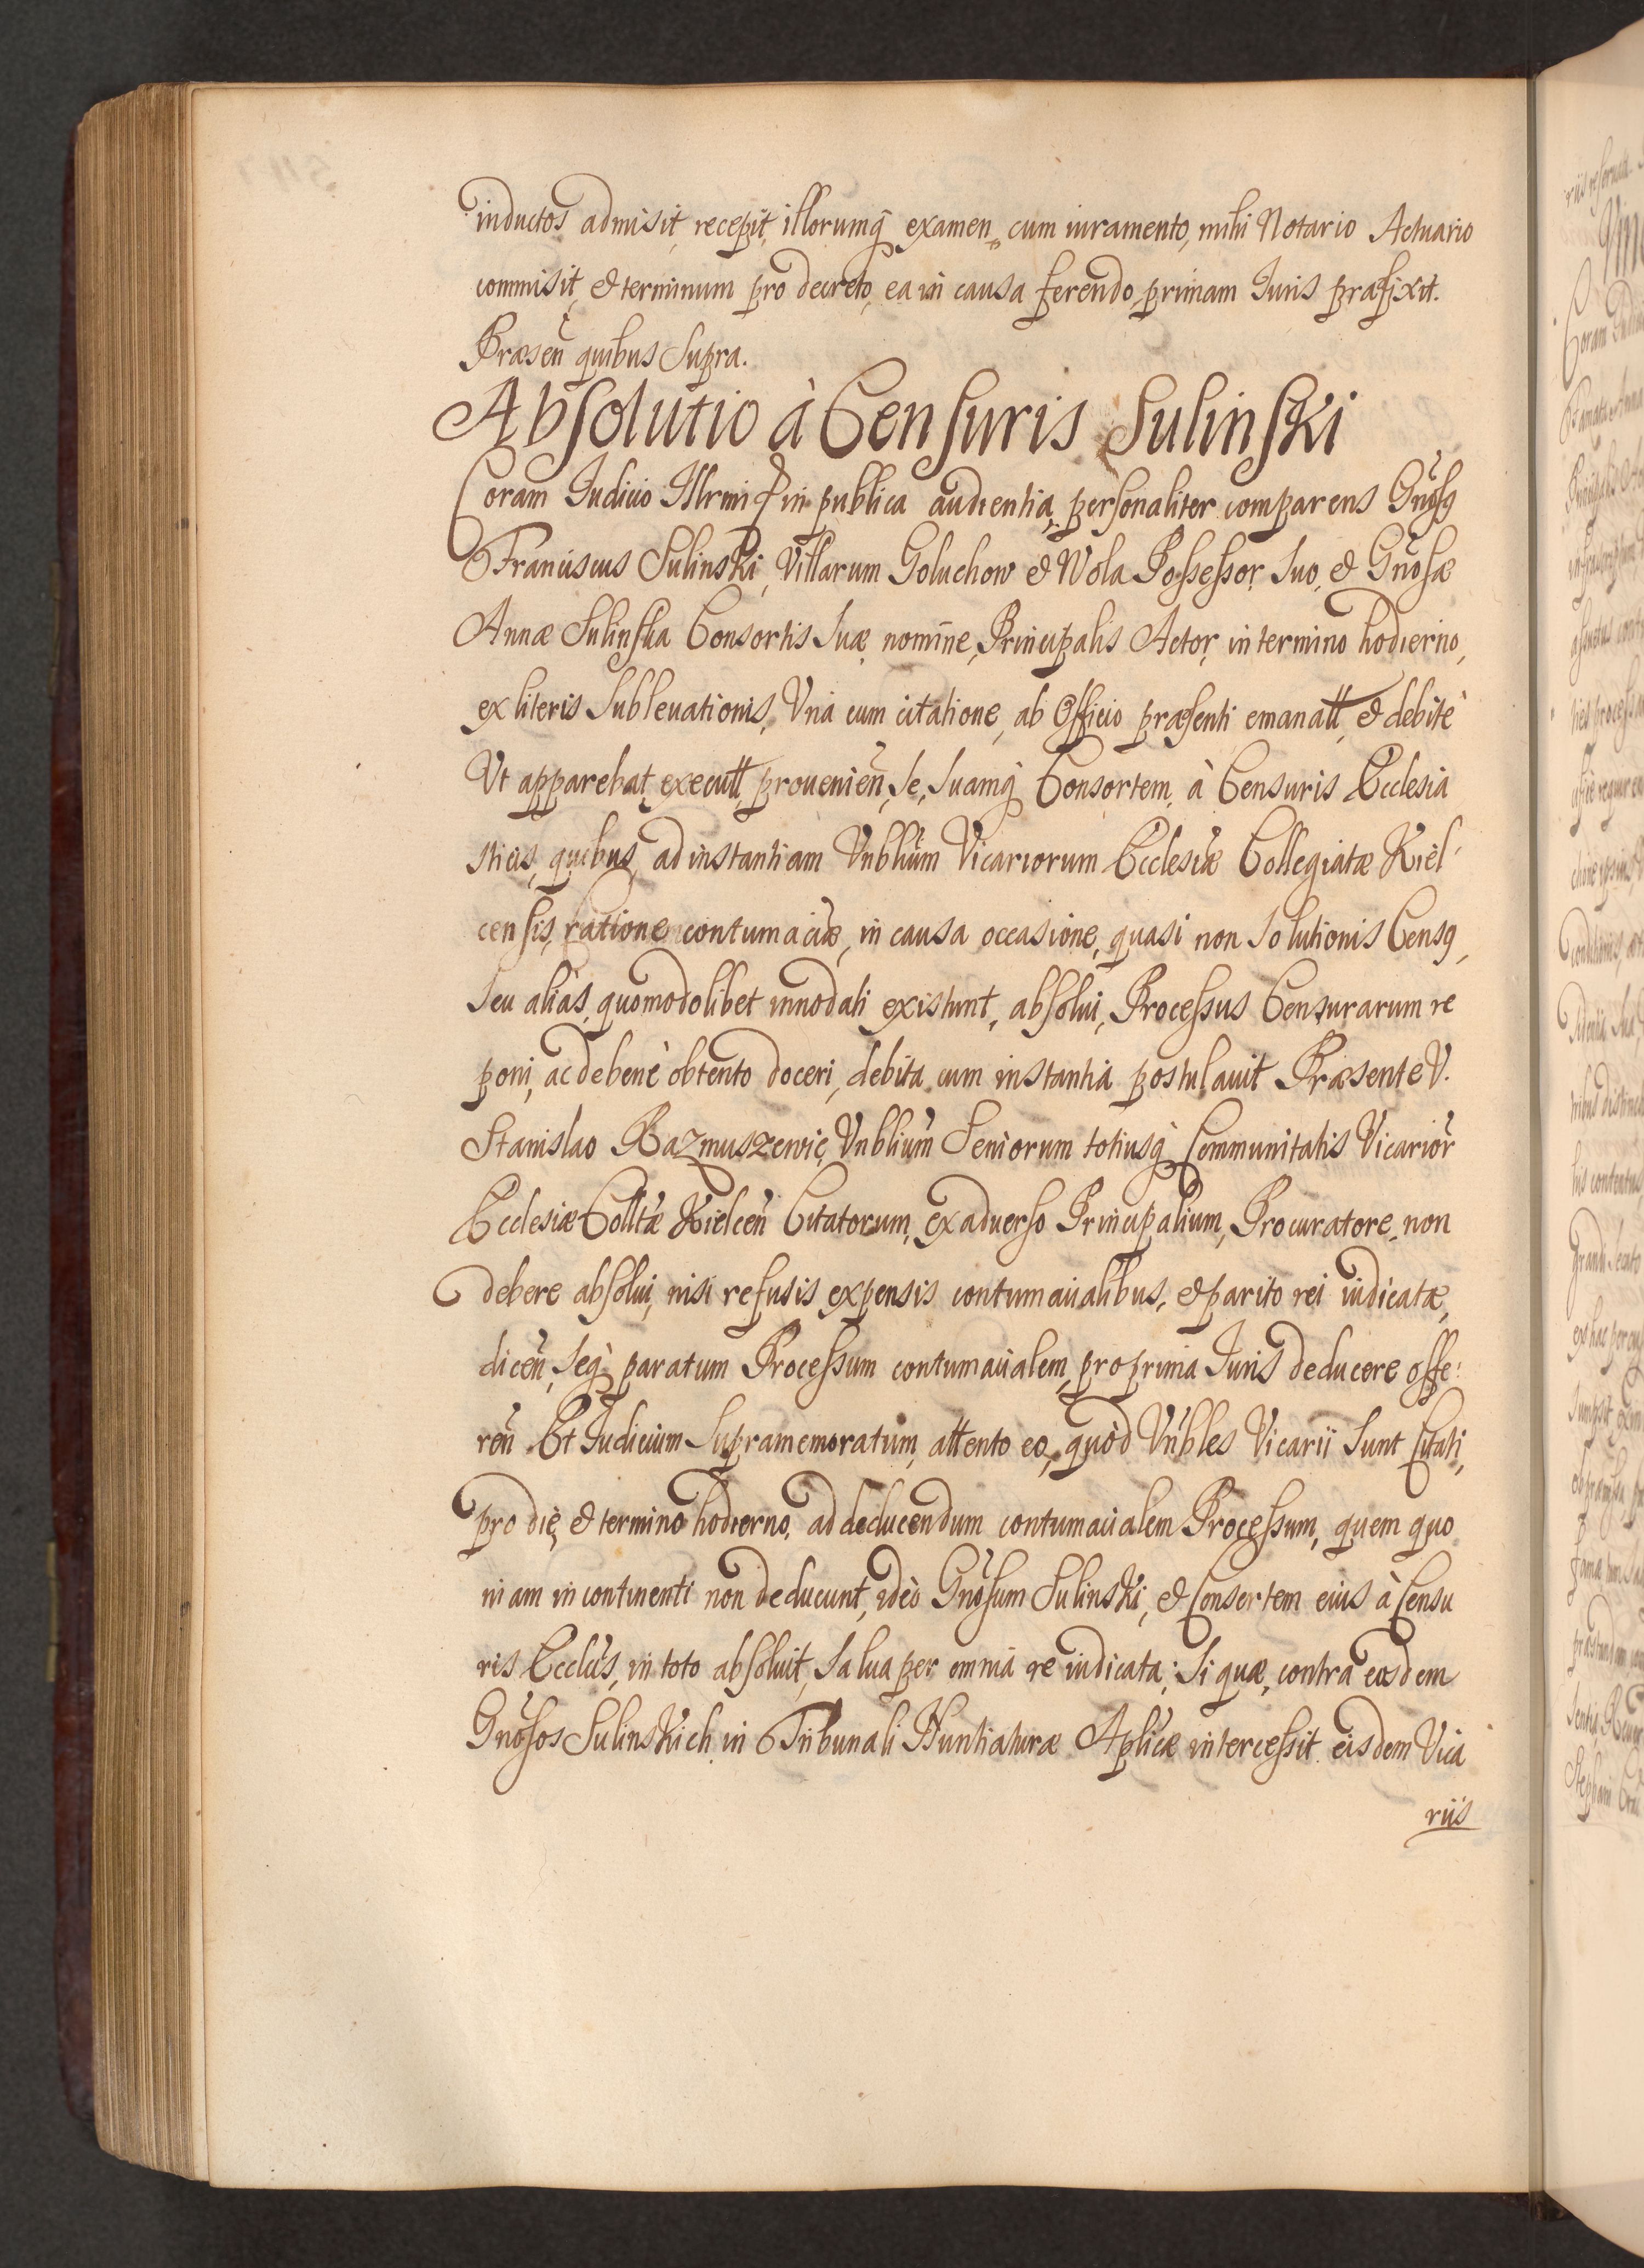 inductos admisit, recepit, illorumq̃ examen, cum iuramento, mihi Notario Actuario
commisit, et terminum pro decreto, ea in causa ferendo, primam Iuris præfixit.
Præseñ quibus supra.
Absolutio à Censuris Sulinski
Coram Iudicio Illrmi in publica audientia, personaliter comparens Gnosq
Franciscus Sulinski, Villarum Goluchow et Wola Possessor, suo, et Gnosæ
Annæ Sulinska Consortis suæ nomine, Principalis Actor, in termino hodierno,
ex literis subleuationis, Vnà cum citatione, ab Officio præsenti emanatt, et debitè
Vt apparebat, executt, prouenieñ, se, suamq̃ Consortem, à Censuris Ecclesia
sticis, quibus, ad instantiam Vnblium Vicariorum Ecclesiæ Collegiatæ Kiel
censis, ratione contumaciæ, in causa occasione, quasi non solutionis Censq,
seu alias, quomodolibet innodati existunt, absolui, Processus Censurarum re
poni, ac de benè obtento doceri, debita cum instantia postulauit Præsente V.
Stanislao Razmuszewic, Vnblium Seniorum totiusq̃ Communitatis Vicarior
Ecclesiæ Colltæ Kielceñ Citatorum, ex aduerso Principalium, Procuratore, non
debere absolui, nisi refusis expensis contumacialibus, et parito rei iudicatæ,
diceñ, seq̃ paratum Processum contumacialem, pro prima Iuris deducere offe:
reñ Et Iudicium supramemoratum, attento eo, quòd Vnbles Vicarii sunt Citati,
pro die, et termino hodierno, ad deducendum contumacialem Processum, quem quo
niam in continenti non deducunt, ideò Gnosum Sulinski, et Consortem eius à Censu
ris Ecclis, in toto absoluit, salua per omnia re iudicata; si quæ, contra eosdem
Gnosos Sulinskich in Tribunali Nuntiaturæ Aplicæ intercessit eisdem Vica
riis